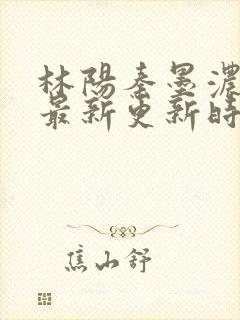 林陽秦墨濃
最新更新時
焦山舒